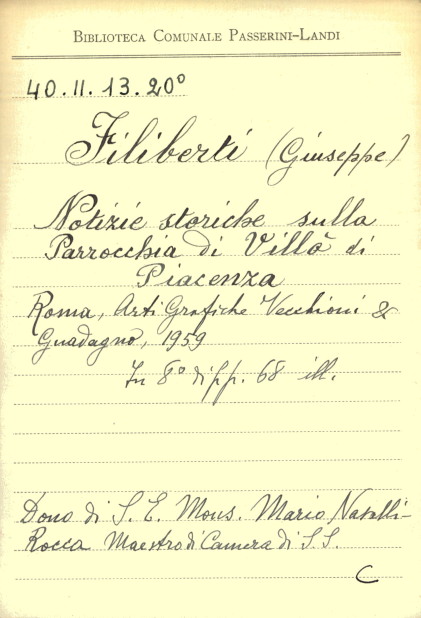 BIBLIOTECA COMUNALE PASSERINI-LANDI
40.II.13.20°
Filiberti (Giuseppe)
Notizie storiche sulla
Parrocchia di Villò di
Piacenza
Roma, Arti Grafiche Vecchioni &
Guadagno, 1959
In 8° di pp. 68 ill.
Dono di S. E. Mons. Mario Nasalli-
Rocca Maestro di Camera di S. S.
C